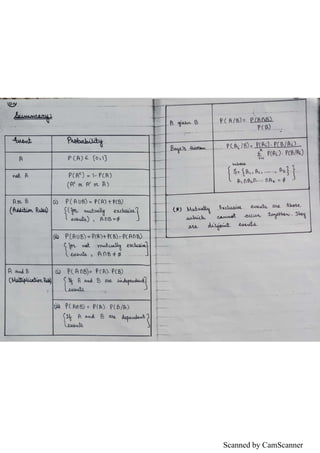 Summary:
Event Probability
A P(A) ∈ [0,1]
not A P(Aᶜ) = 1- P(A)
(Aᶜ or A' or Ā)
A or B (i) P(A∪B) = P(A)+P(B)
(Addition Rules) {(for mutually exclusive
events), A∩B=ϕ}
(ii) P(A∪B)=P(A)+P(B)-P(A∩B)
{for not mutually exclusive
events, A∩B≠ϕ}
A and B (i) P(A∩B)= P(A).P(B)
(Multiplication Rule) {If A and B are independent
events}
(ii) P(A∩B) = P(A). P(B/A)
{If A and B are dependent
events}
A given B P(A/B)= P(A∩B)
P(B)
Baye's theorem
where
(*) Mutually Exclusive events are those
which cannot occur together. They
are disjoint events.
Scanned by CamScanner